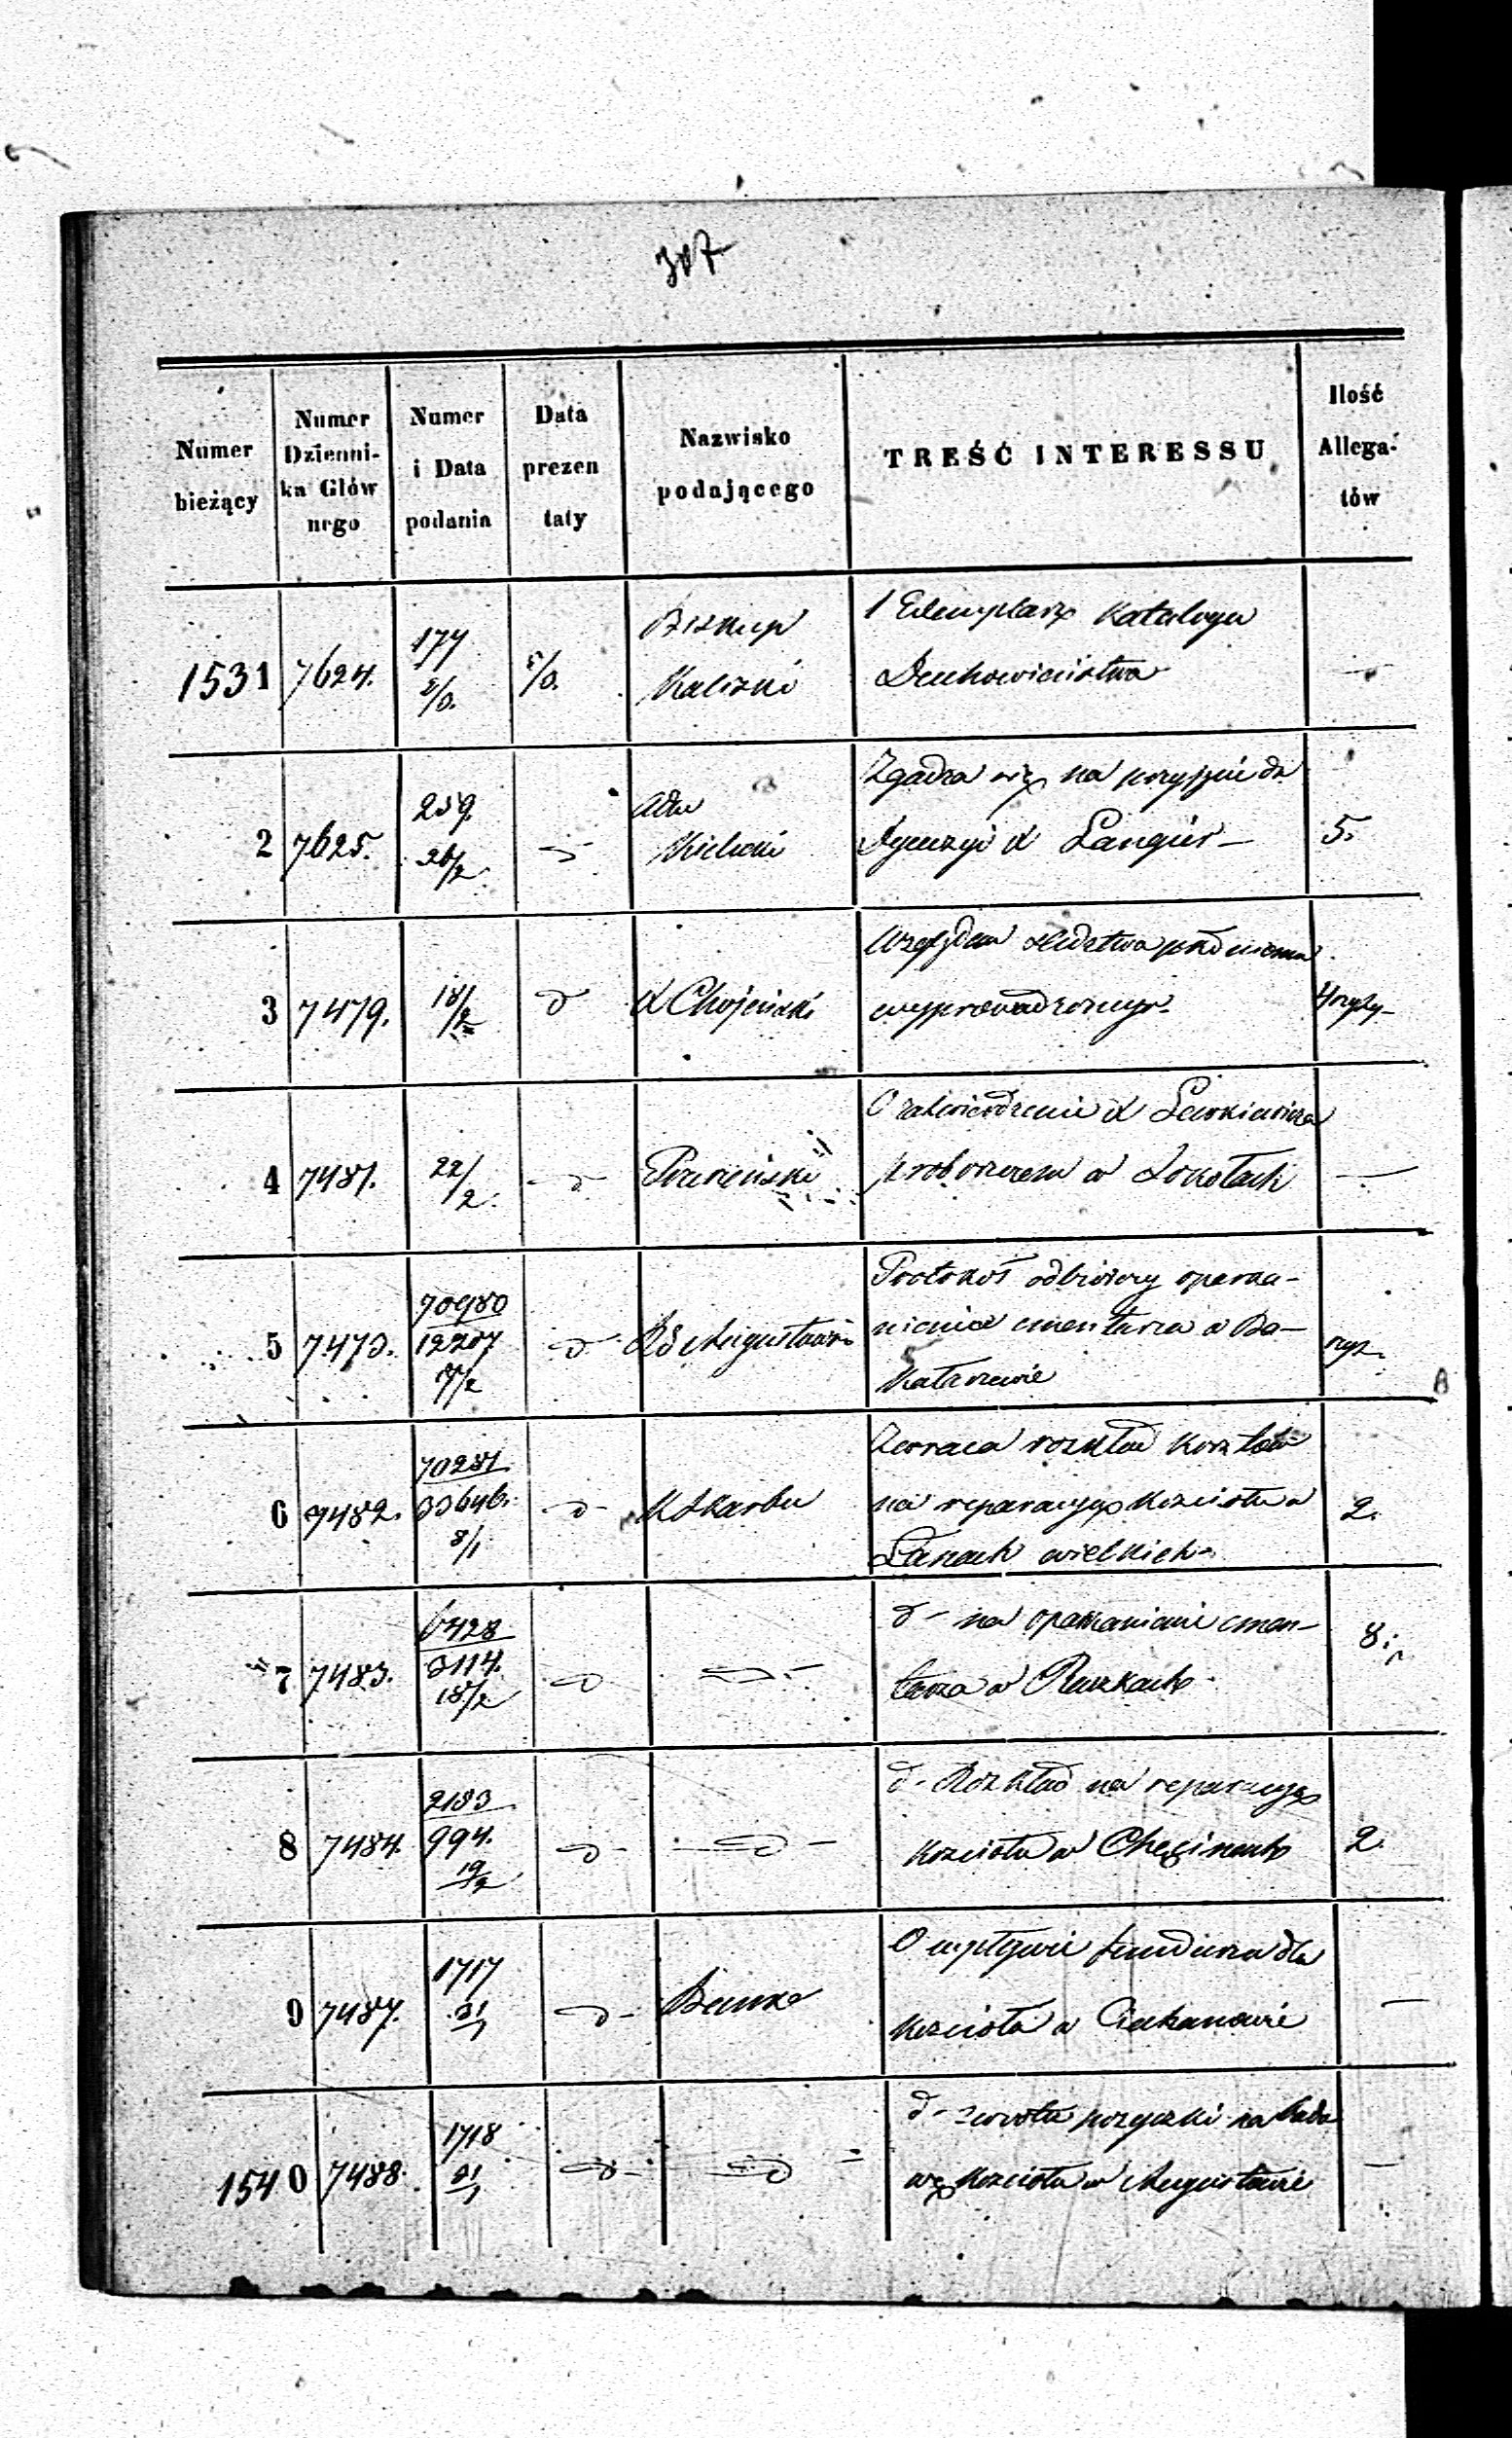 307
Numer bieżący
Numer Dzienni- ka Głów nego
Numer i Data podania
Data prezen taty
Nazwisko podającego
TREŚĆ INTERESSU
Ilość Allega- tów
1531 7624. 174 Biskup 1 Exemplarz Katalogu
Kaliski Duchowieństwa —
2 7625. 259. 26/2 Adm Zgadza się na przyjęcie
Kielecki X Langier — 5.
3 7479. 18/2 d X Chojeński Względem śledztwa
wyprowadzonego.
4 7481. 22/2. d O zatwierdzenie X
proboszczem w —
5 7473. 70980 12207 d RG Augustowski Protokół odbiorczy oparka-
nienia cmentarza w Ba-
kałarzewie ryz.
6 7482. 70281 33646. 8/1 d K Skarbu Zwraca rozkład kosztów
na reparacyę kościoła w
Łanach wielkich 2.
7 7483. 6428 3114. 18/2 d d d - na oparkanienie cmen-
tarza w Ruszkach 8.
8 7484. 2183 994. 19/2 d d d - Rozkład na reparacyę
kościoła w Chęcinach 2.
9 7487. 1717 31/1 d Banku O wpływie funduszu dla
kościoła w Ciechanowie —
1540 7488. 1718 31/1 d d d - zwrotu pożyczki na budo
wę kościoła w Augustowie —